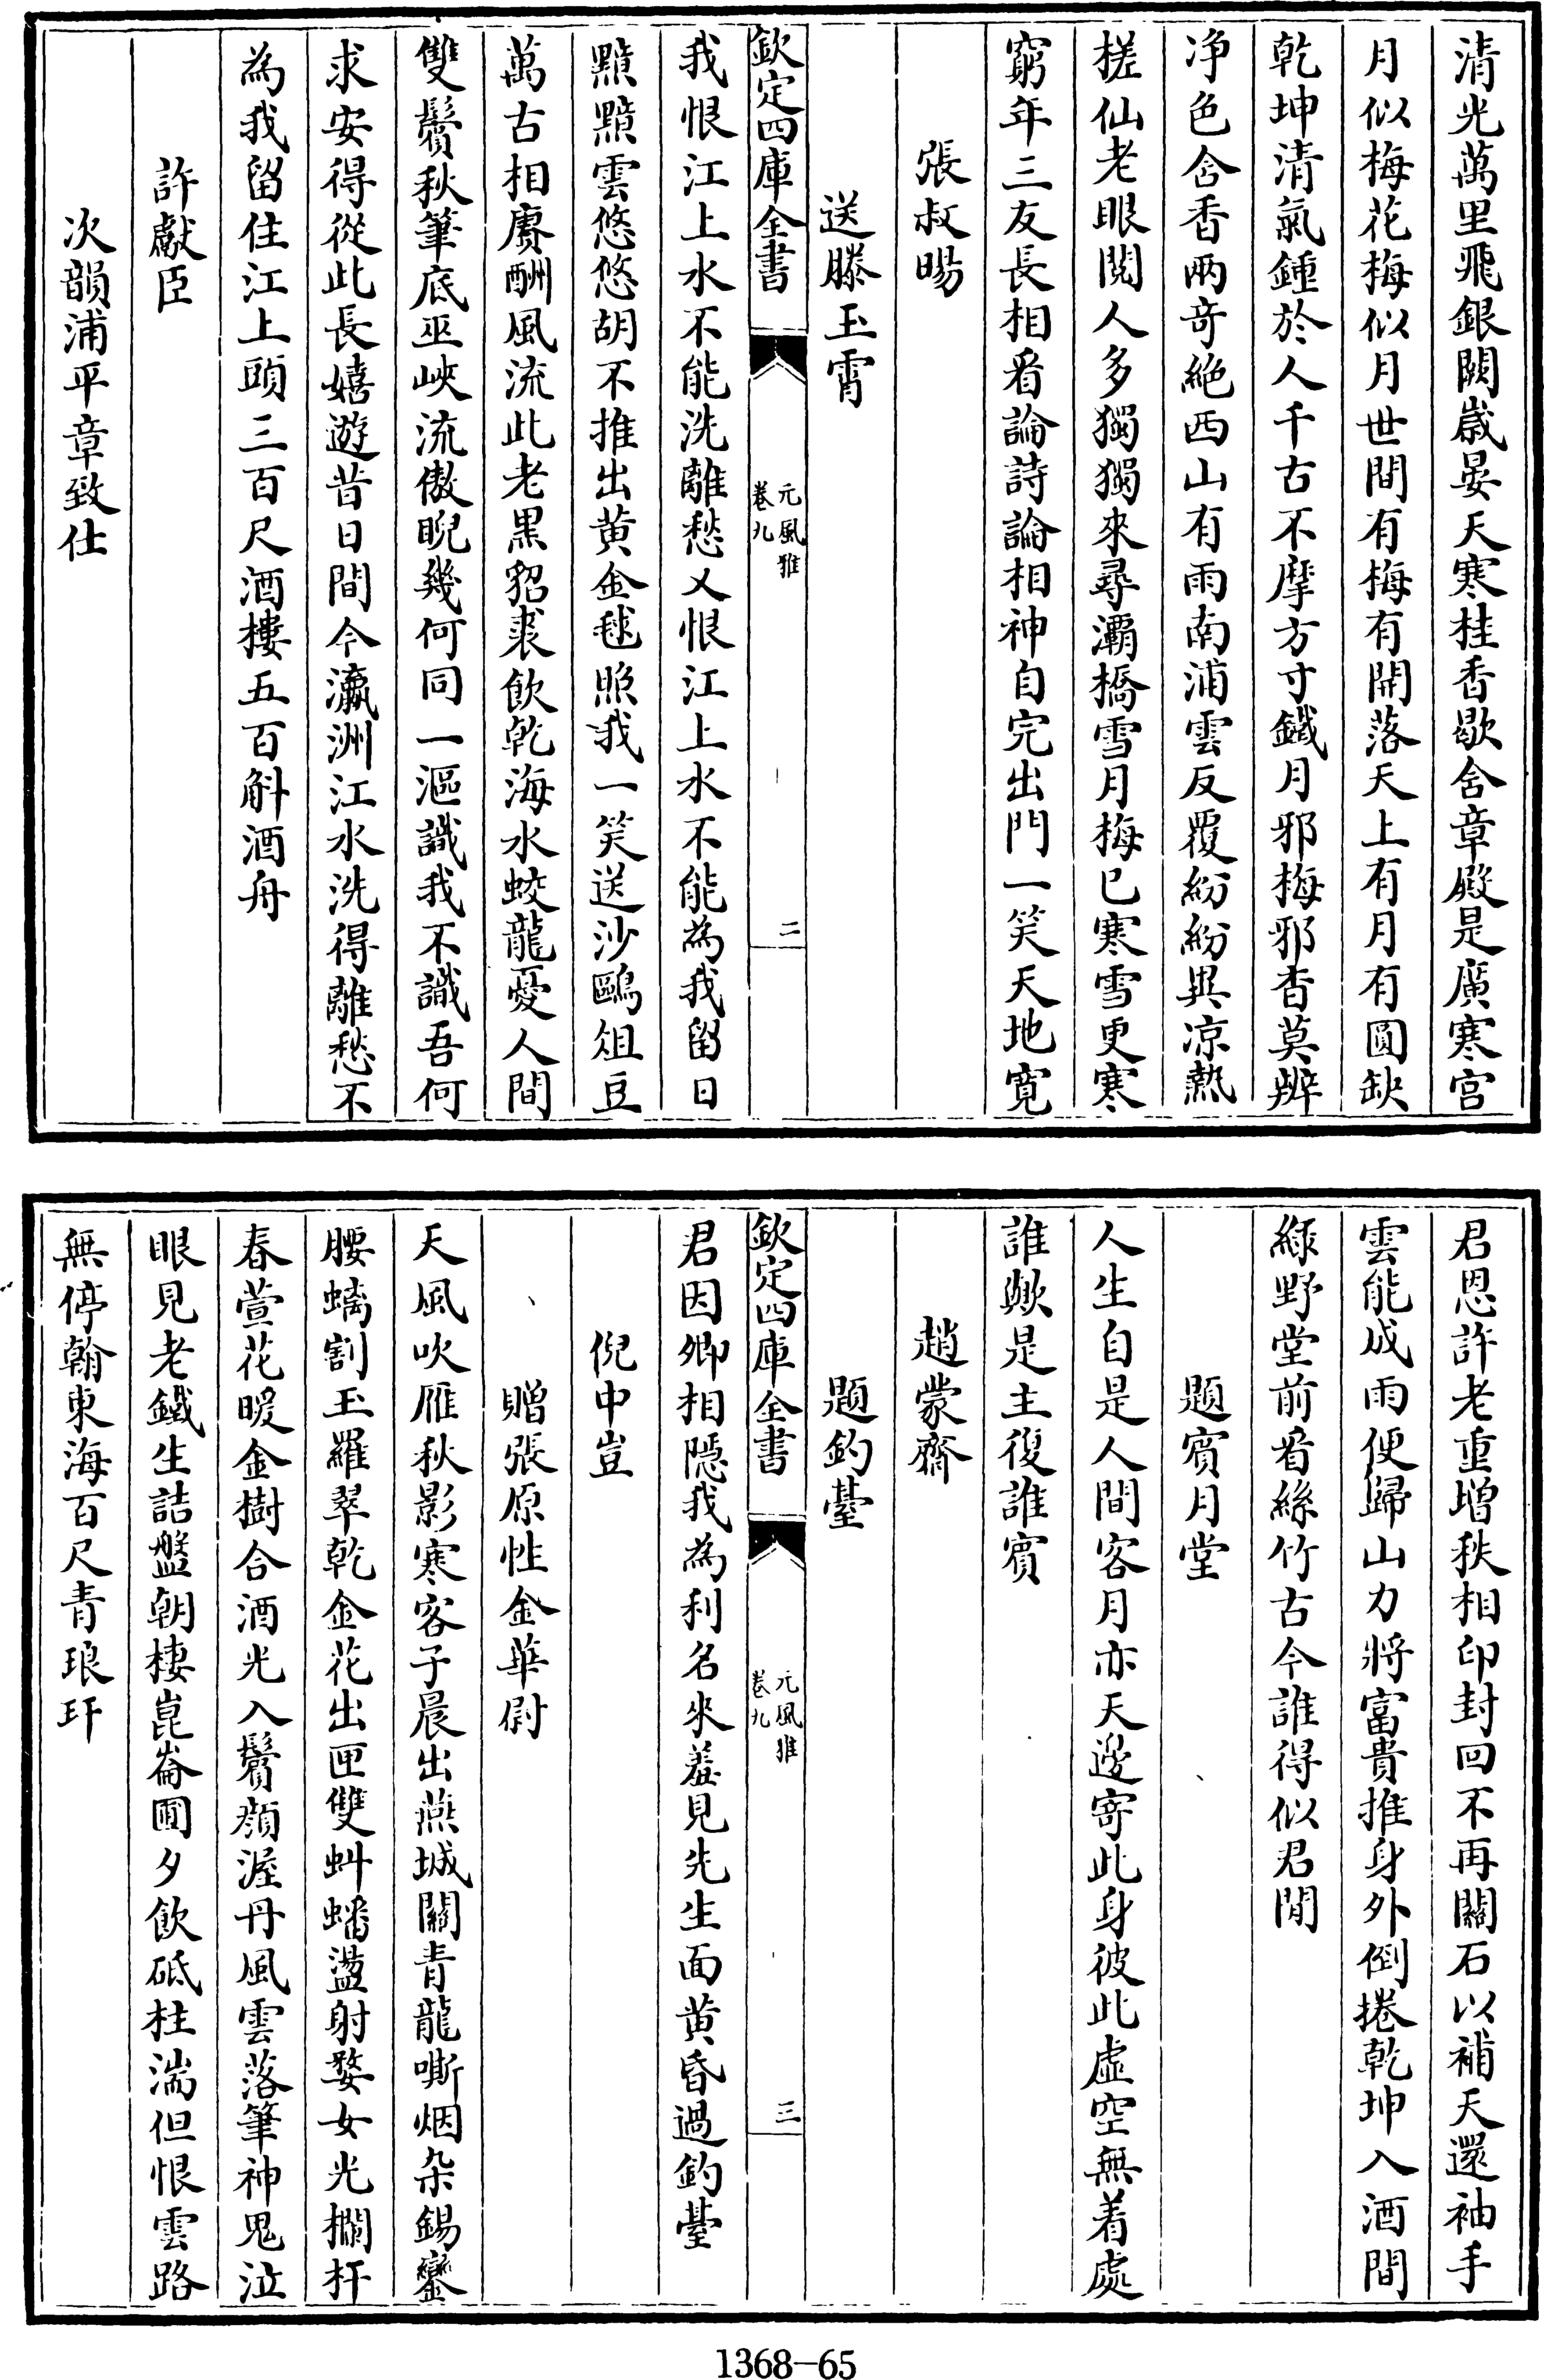 清光萬里飛銀闕歲晏天寒桂香歇含章殿是廣寒宫
月似梅花梅似月世間有梅有開落天上有月有圓缺
乾坤清氣鍾於人千古不摩方寸鐵月邪梅邪杳莫辨
净色含香兩竒絶西山有雨南浦雲反覆紛紛異凉熱
槎仙老眼閲人多獨獨來尋灞橋雪月梅已寒雪更寒
窮年三友長相看論詩論相神自完出門一笑天地寛
張叔暘
送滕玉霄
欽定四庫全書
元風雅
卷九
二
我恨江上水不能洗離愁又恨江上水不能為我留日
㸃㸃雲悠悠胡不推出黄金毬照我一笑送沙鷗俎豆
萬古相賡酬風流此老黒貂裘飲乾海水蛟龍憂人間
雙鬢秋筆底巫峽流傲睨幾何同一漚識我不識吾何
求安得從此長嬉遊昔日間今瀛洲江水洗得離愁不
為我留住江上頭三百尺酒樓五百斛酒舟
許獻臣
次韻浦平章致仕
君恩許老重増秩相印封回不再關石以補天還袖手
雲能成雨便歸山力將富貴推身外倒捲乾坤入酒間
緑野堂前看絲竹古今誰得似君閒
題賓月堂
人生自是人間客月亦天邊寄此身彼此虚空無着處
誰歟是主復誰賓
趙蒙齋
題釣臺
欽定四庫全書
元風雅
卷九
三
君因卿相隱我為利名來羞見先生面黄昏過釣臺
倪中豈
贈張原性金華尉
天風吹雁秋影寒客子晨出燕城關青龍嘶烟朵錫鑾
腰螭割玉羅翠乾金花出匣雙虯蟠盪射婺女光欄杆
春萱花暖金樹合酒光入鬢顔渥丹風雲落筆神鬼泣
眼見老鐵生詰盤朝棲崑崙圃夕飲砥柱湍但恨雲路
無停翰東海百尺青琅玕
1368—65